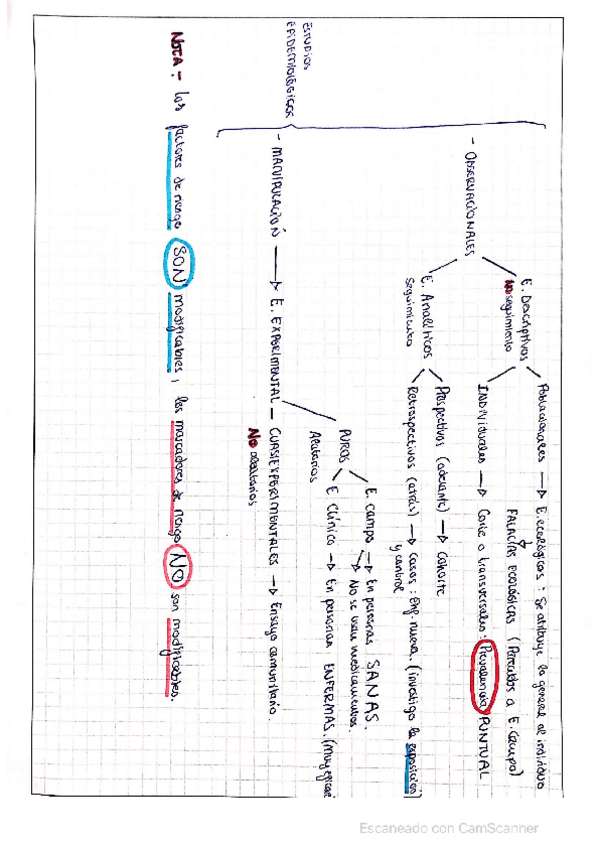 ESTUDIOS
EPIDEMIOLÓGICOS
- OBSERVACIONALES
E. Descriptivos
NO seguimiento
Poblacionales → E. ecológicos: Se atribuye lo general al individuo
FALACIAS ECOLÓGICAS (Parecidos a E. Campo)
INDIVIDUALES → Corte o transversales: Prevalencia PUNTUAL
E. Analíticos
seguimiento
Prospectivos (adelante) → Cohorte
Retrospectivos (atrás) → Casos: Enf. nueva (investigo la exposición)
y control
- MANIPULACIÓN → E. EXPERIMENTAL
PUROS
Aleatorios
E. campo → En personas SANAS.
→ No se usan medicamentos.
E. Clínico → En personas ENFERMAS.
- CUASIEXPERIMENTALES → Ensayo comunitario.
NO aleatorios
NOTA - Los factores de riesgo SON modificables, los marcadores de riesgo NO son modificables.
Escaneado con CamScanner